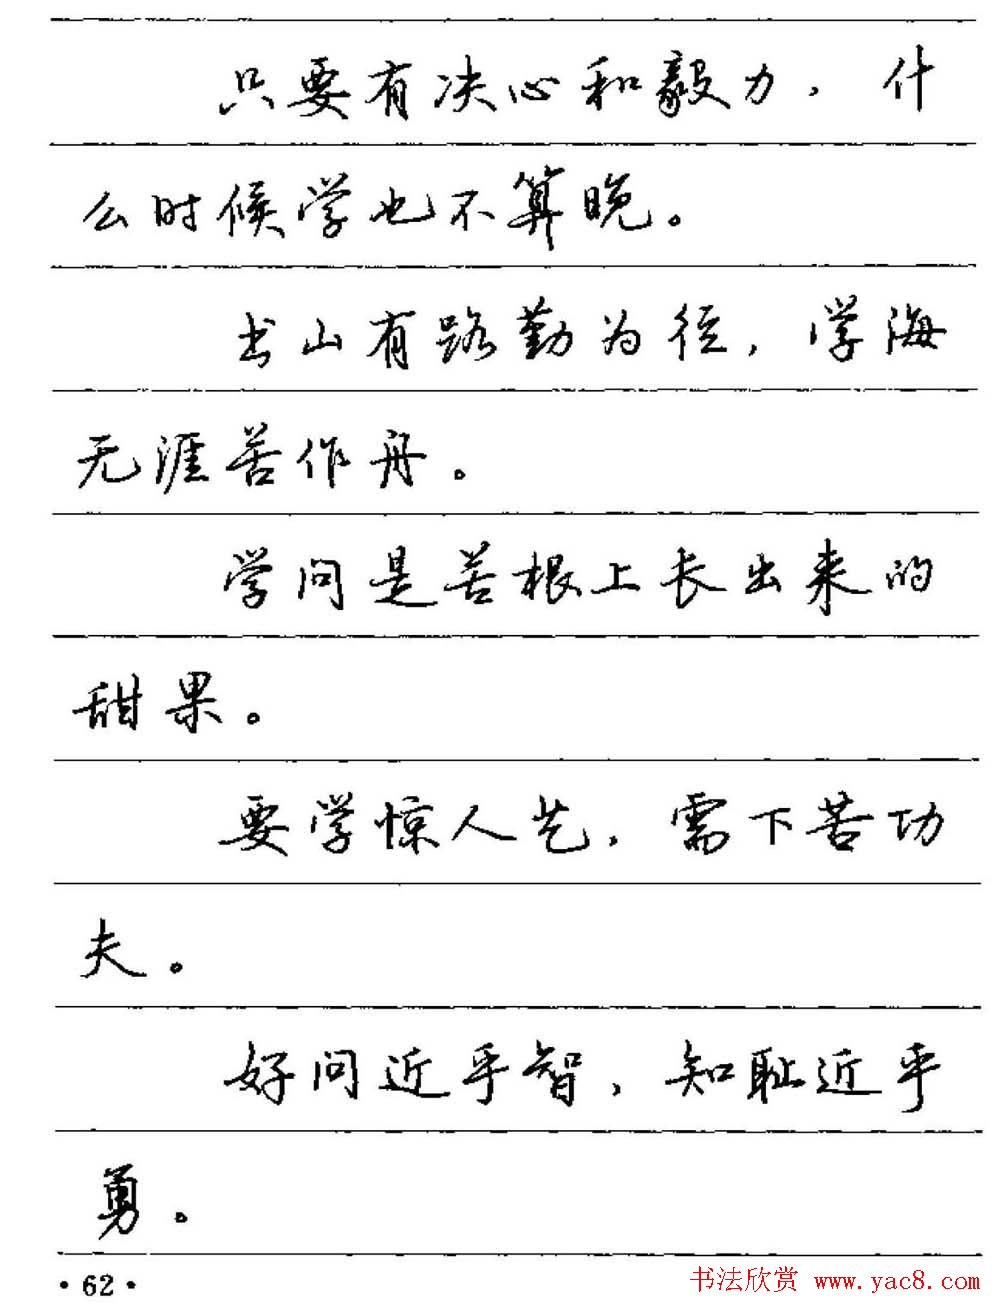 只要有决心和毅力，什
么时候学也不算晚。
书山有路勤为径，学海
无涯苦作舟。
学问是苦根上长出来的
甜果。
要学惊人艺，需下苦功
夫。
好问近乎智，知耻近乎
勇。
·62·
书法欣赏 www.yac8.com